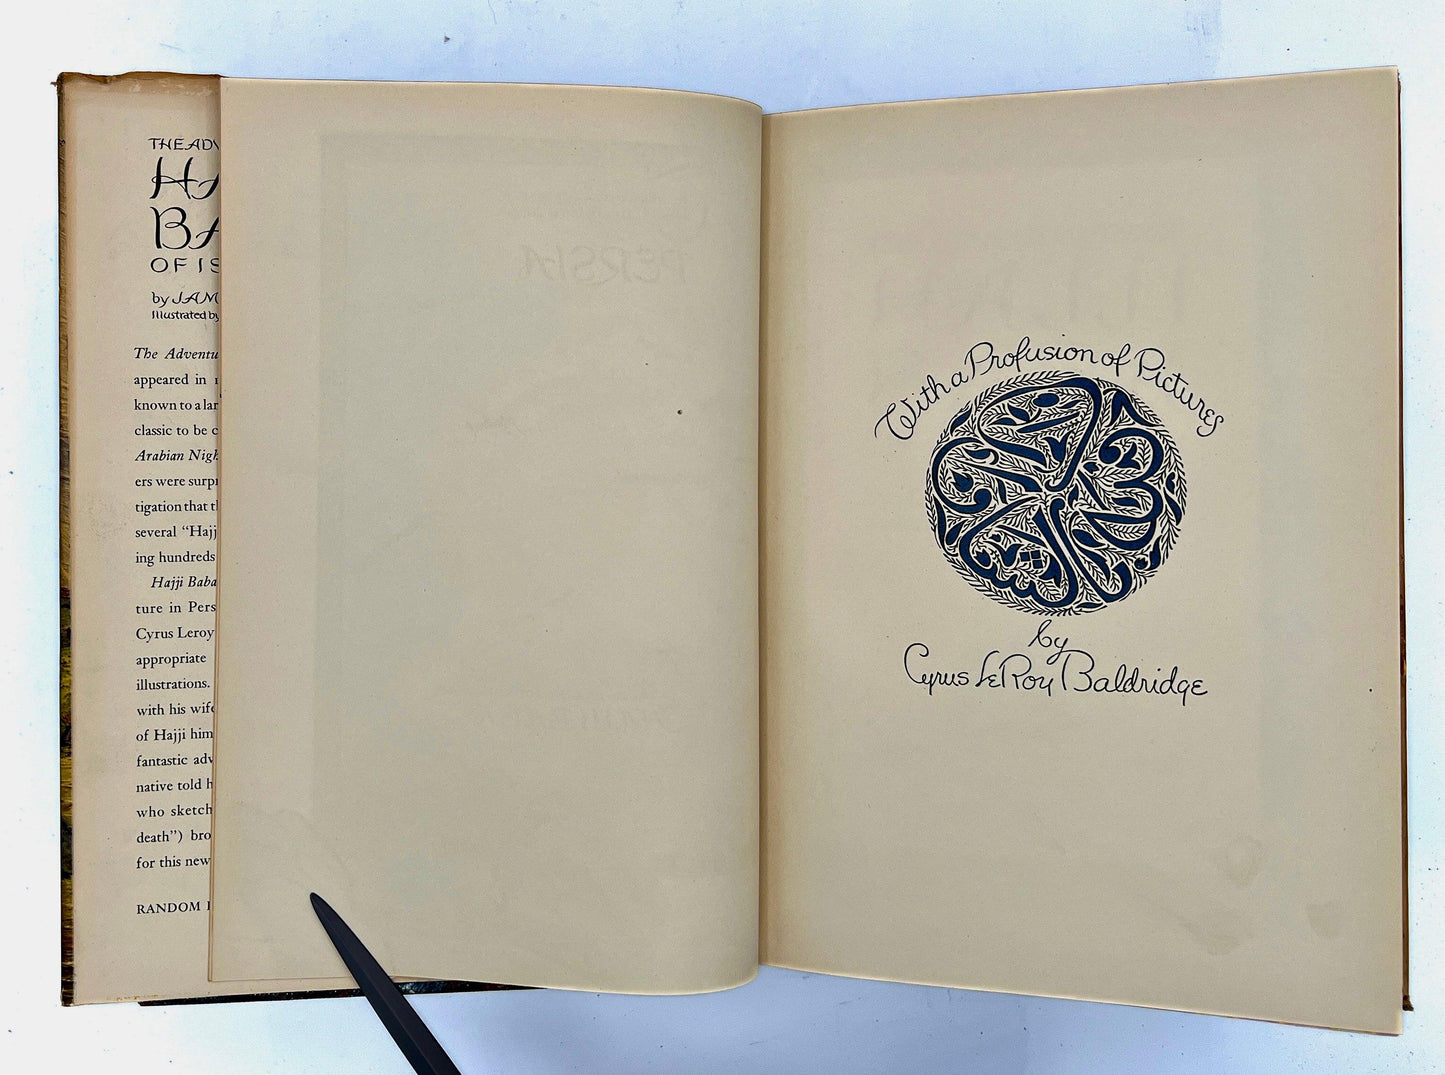 THE ADV
HA
BA
OF IS
by JAM
Illustrated by
The Adventu
appeared in
known to a lar
classic to be c
Arabian Nigh
ers were surpr
tigation that th
several “Hajj
ing hundreds
Hajji Baba
ture in Pers
Cyrus Leroy
appropriate
illustrations.
with his wife
of Hajji him
fantastic adv
native told h
who sketch
death”) bro
for this new
RANDOM
PERSIA
With a Profusion of Pictures
by
Cyrus LeRoy Baldridge